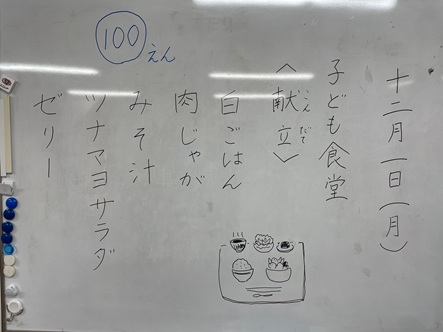 十二月一日(月)
子ども食堂
〈献立〉
こんだて
白ごはん
肉じゃが
みそ汁
ツナマヨサラダ
ゼリー
100えん